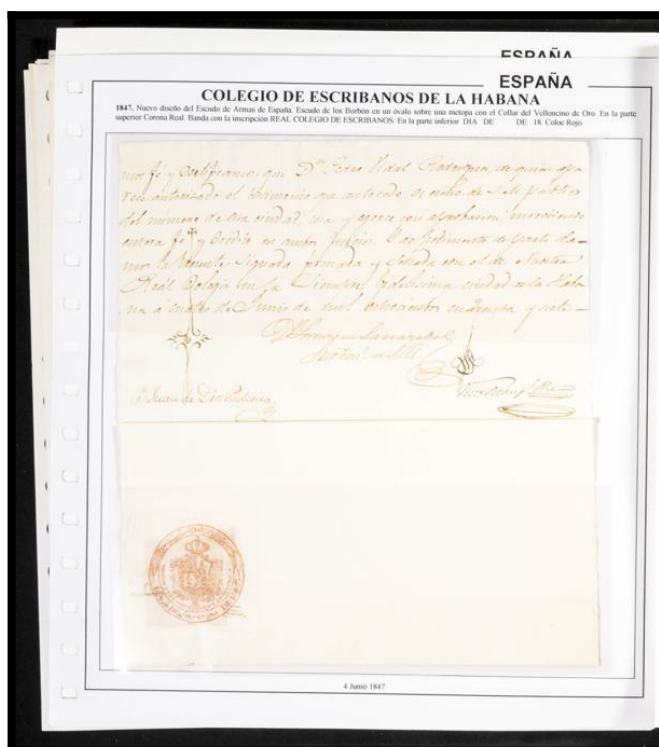 ESPAÑA
ESPAÑA
COLEGIO DE ESCRIBANOS DE LA HABANA
1847. Nuevo diseño del Escudo de Armas de España. Escudo de los Borbón en un óvalo sobre una metopa con el Collar del Velloncino de Oro. En la parte
superior Corona Real. Banda con la inscripción REAL COLEGIO DE ESCRIBANOS. En la parte inferior DIA DE DE 18. Color Rojo.
mos fé y Certificamos que Dn. Pedro Vidal Rodriguez, de quien apa
rece autorizado el testimonio que antecede, es
del número de esta ciudad, usa y ejerce con aprobacion mereciendo
entera fé y Crédito en ambos Juicios. Y a pedimento de parte da-
mos la presente signada firmada y sellada con el de Nuestro
Real Colegio en la Siempre Fidelisima ciudad de la Haba
na a cuatro de Junio de mil ochocientos cuarenta y siete-
Juan de Dios
4 Junio 1847